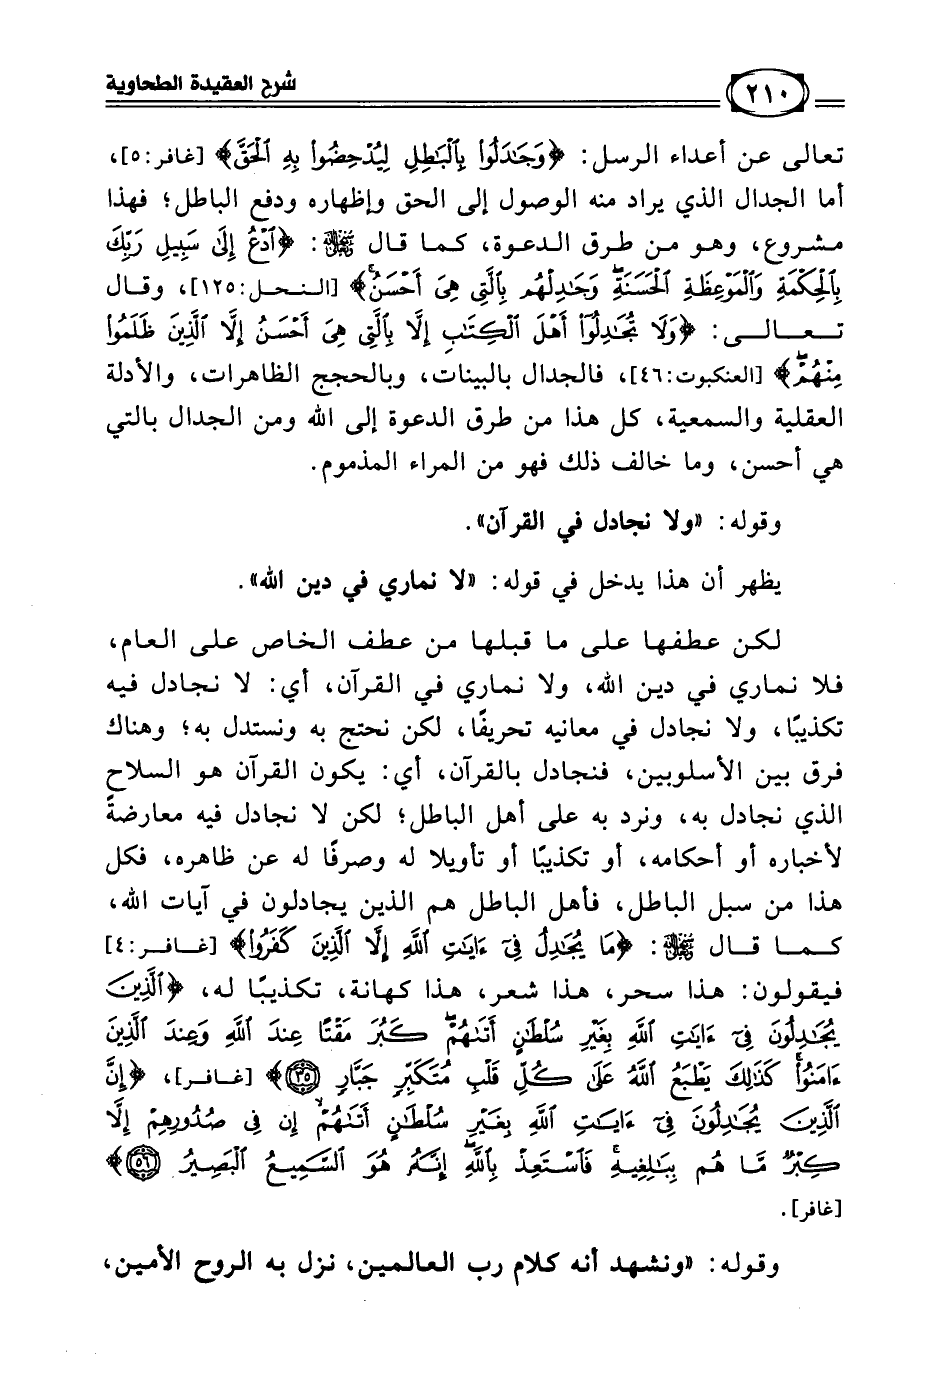 شرح العقيدة الطحاوية
٢١٠
تعالى عن أعداء الرسل: ﴿وَجَٰدَلُوا۟ بِٱلْبَٰطِلِ لِيُدْحِضُوا۟ بِهِ ٱلْحَقَّ﴾ [غافر:٥]،
أما الجدال الذي يراد منه الوصول إلى الحق وإظهاره ودفع الباطل؛ فهذا
مشروع، وهو من طرق الدعوة، كما قال ﷻ: ﴿ٱدْعُ إِلَىٰ سَبِيلِ رَبِّكَ
بِٱلْحِكْمَةِ وَٱلْمَوْعِظَةِ ٱلْحَسَنَةِ ۖ وَجَٰدِلْهُم بِٱلَّتِى هِىَ أَحْسَنُ ۚ﴾ [النحل:١٢٥]، وقال
تعالى: ﴿وَلَا تُجَٰدِلُوٓا۟ أَهْلَ ٱلْكِتَٰبِ إِلَّا بِٱلَّتِى هِىَ أَحْسَنُ إِلَّا ٱلَّذِينَ ظَلَمُوا۟
مِنْهُمْ ۖ﴾ [العنكبوت:٤٦]، فالجدال بالبينات، وبالحجج الظاهرات، والأدلة
العقلية والسمعية، كل هذا من طرق الدعوة إلى الله ومن الجدال بالتي
هي أحسن، وما خالف ذلك فهو من المراء المذموم.
وقوله: «ولا نجادل في القرآن».
يظهر أن هذا يدخل في قوله: «لا نماري في دين الله».
لكن عطفها على ما قبلها من عطف الخاص على العام،
فلا نماري في دين الله، ولا نماري في القرآن، أي: لا نجادل فيه
تكذيبًا، ولا نجادل في معانيه تحريفًا، لكن نحتج به ونستدل به؛ وهناك
فرق بين الأسلوبين، فنجادل بالقرآن، أي: يكون القرآن هو السلاح
الذي نجادل به، ونرد به على أهل الباطل؛ لكن لا نجادل فيه معارضةً
لأخباره أو أحكامه، أو تكذيبًا أو تأويلا له وصرفًا له عن ظاهره، فكل
هذا من سبل الباطل، فأهل الباطل هم الذين يجادلون في آيات الله،
كما قال ﷻ: ﴿مَا يُجَٰدِلُ فِىٓ ءَايَٰتِ ٱللَّهِ إِلَّا ٱلَّذِينَ كَفَرُوا۟﴾ [غافر:٤]
فيقولون: هذا سحر، هذا شعر، هذا كهانة، تكذيبًا له، ﴿ٱلَّذِينَ
يُجَٰدِلُونَ فِىٓ ءَايَٰتِ ٱللَّهِ بِغَيْرِ سُلْطَٰنٍ أَتَىٰهُمْ ۖ كَبُرَ مَقْتًا عِندَ ٱللَّهِ وَعِندَ ٱلَّذِينَ
ءَامَنُوا۟ ۚ كَذَٰلِكَ يَطْبَعُ ٱللَّهُ عَلَىٰ كُلِّ قَلْبِ مُتَكَبِّرٍ جَبَّارٍ ٣٥﴾ [غافر]، ﴿إِنَّ
ٱلَّذِينَ يُجَٰدِلُونَ فِىٓ ءَايَٰتِ ٱللَّهِ بِغَيْرِ سُلْطَٰنٍ أَتَىٰهُمْ ۙ إِن فِى صُدُورِهِمْ إِلَّا
كِبْرٌ مَّا هُم بِبَٰلِغِيهِ ۚ فَٱسْتَعِذْ بِٱللَّهِ ۖ إِنَّهُۥ هُوَ ٱلسَّمِيعُ ٱلْبَصِيرُ ٥٦﴾
[غافر].
وقوله: «ونشهد أنه كلام رب العالمين، نزل به الروح الأمين،